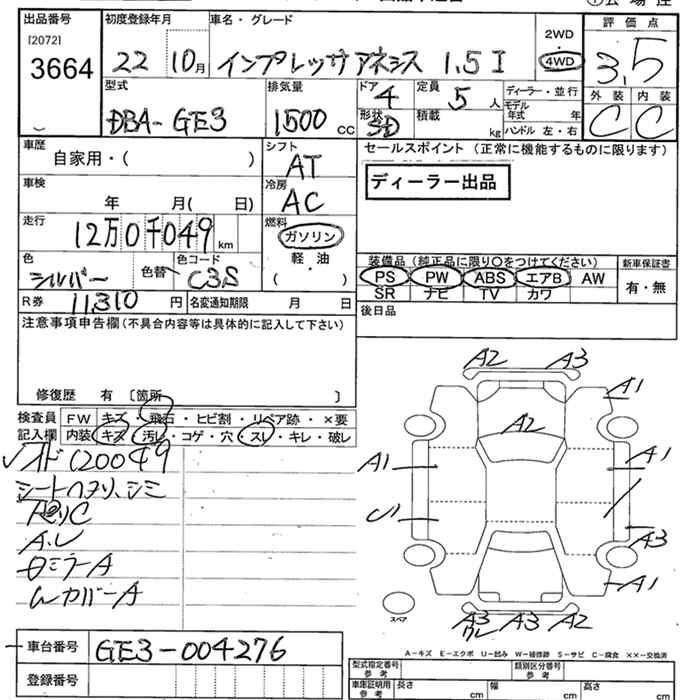 出品番号 初度登録年月 車名・グレード 評価点
[2072]
3664 22 10月 インプレッサアネシス 1.5I 2WD 4WD 3.5
型式 排気量 ドア 4 定員 5人 ディーラー・並行 外装 内装
DBA-GE3 1500cc 形状 SD 積載 kg モデル年式 年 ハンドル 左・右 C C
車歴 自家用・( ) シフト AT セールスポイント(正常に機能するものに限ります)
車検 年 月( 日) 冷房 AC ディーラー出品
走行 12万0千049km 燃料 ガソリン 軽・油 ( )
色 シルバー 色替 色コード C3S
装備品(純正品に限り○をつけてください) 新車保証書
PS PW ABS エアB AW 有・無
SR ナビ TV カワ
R券 11,310円 名変通知期限 月 日
後日品
注意事項申告欄(不具合内容等は具体的に記入して下さい)
修復歴 有 〔箇所 〕
検査員 FW キズ・飛石・ヒビ割・リペア跡・×要
記入欄 内装 キズ・汚レ・コゲ・穴・スレ・キレ・破レ
120049
シートヘタリ、シミ
ドミラーA
A2 A3
A1
A2
A1 A1
U1
A3
A1
XX A3 A2
スペア
A-キズ E-エクボ U-凹み W-補修跡 S-サビ C-腐食 XX-交換済
車台番号 GE3-004276
登録番号
型式指定番号 参考 類別区分番号 参考
車庫証明用 参考 長さ cm 幅 cm 高さ cm